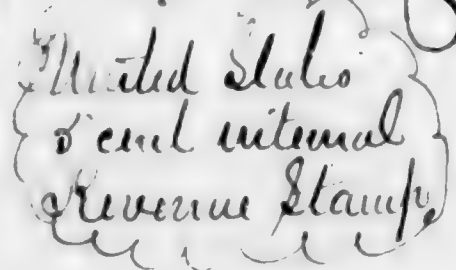 United States
5 cent internal
Revenue Stamp,